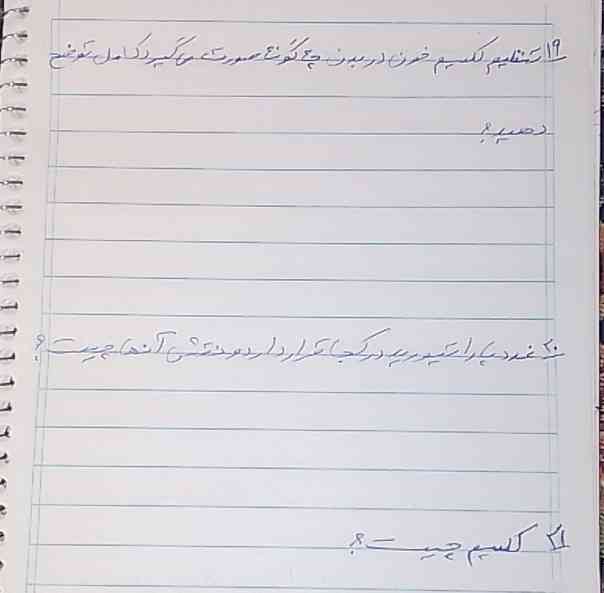 ۱۹ تنظیم کلسیم خون در بدن چه گونه صورت می گیرد کامل توضیح
دهید؟
۲۰ غدد پاراتیورید در کجا قرار دارد و نقش آنها چیست؟
۲۱ کلسیم چیست؟